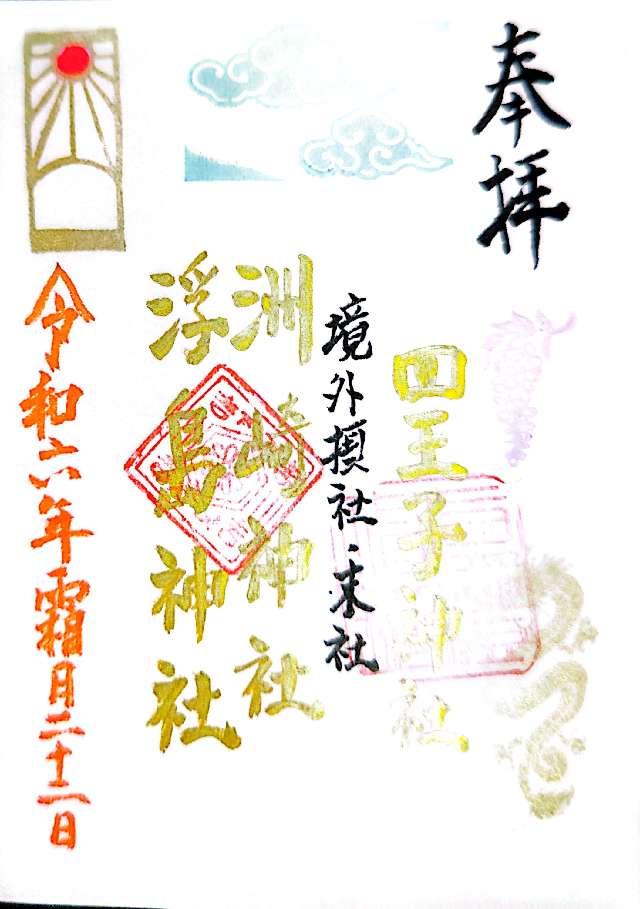 奉拝
四王子神社
境外摂社・末社
洲崎神社
浮島神社
令和六年霜月二十二日